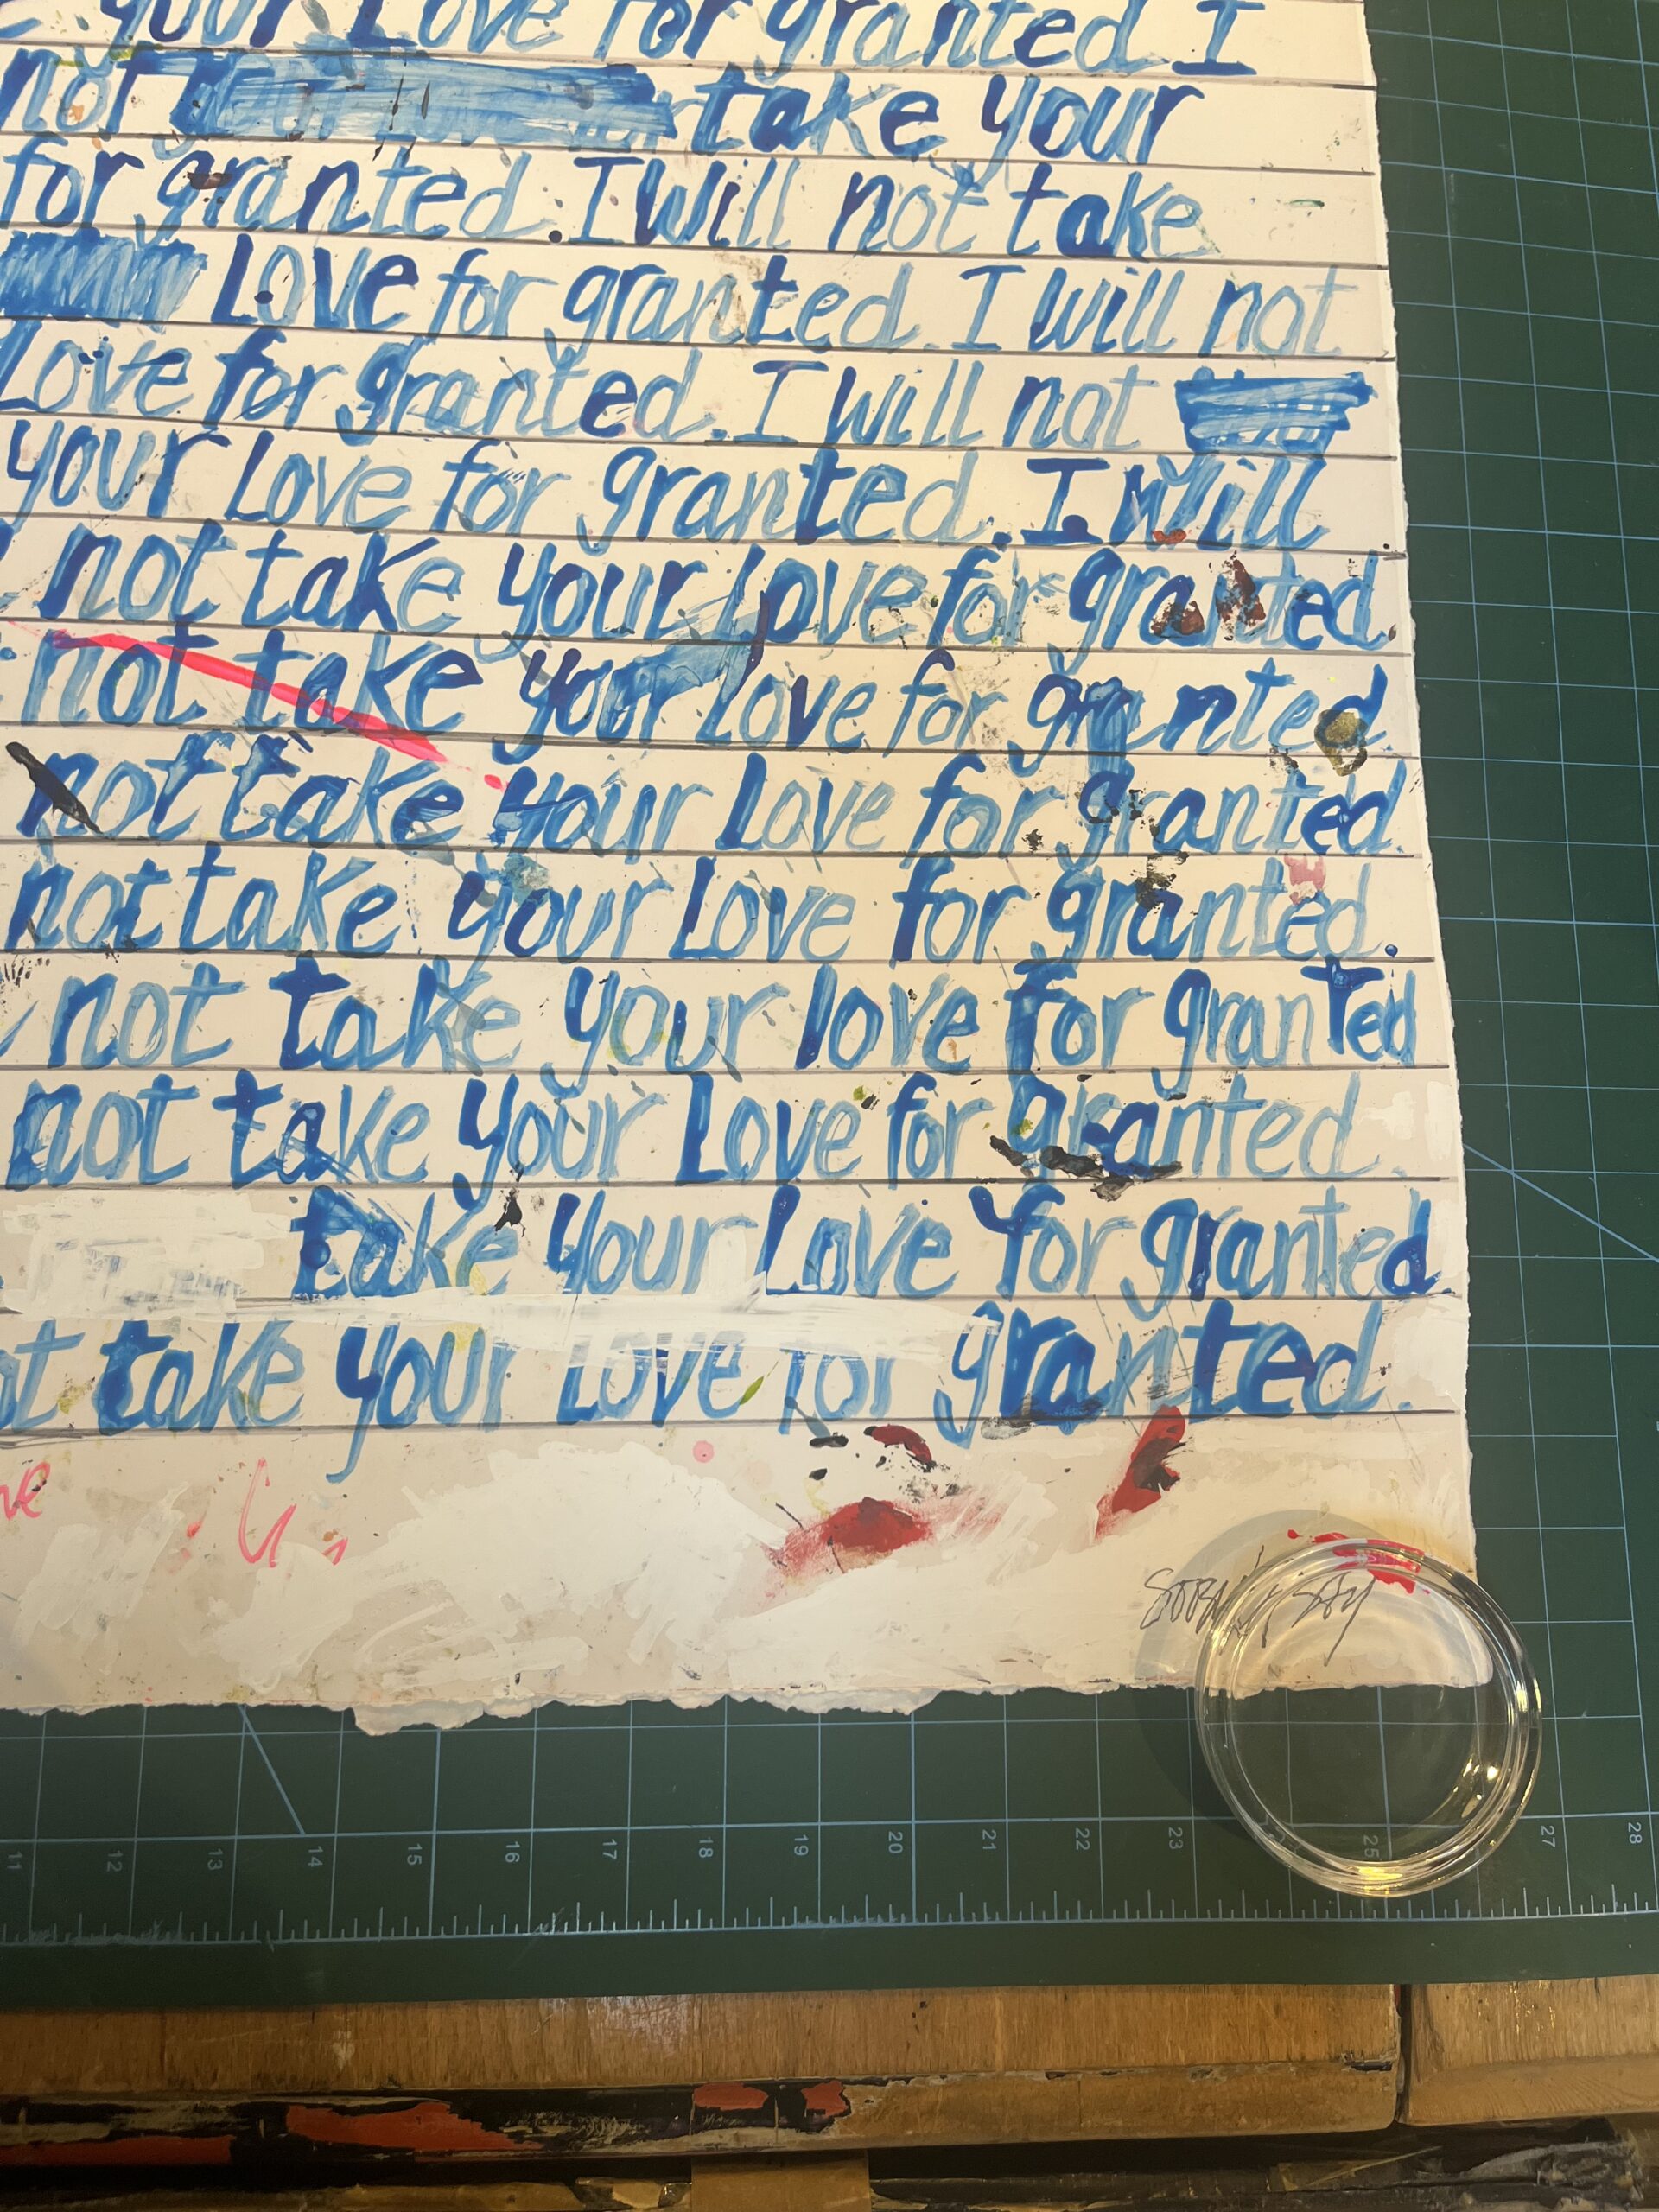 your Love for granted I
not take your
for granted. I Will not take
Love for granted. I will not
Love for granted. I will not
your Love for granted. I Will
not take your Love for granted.
not take your Love for granted.
not take your Love for granted.
not take your Love for granted.
not take your love for granted
not take your Love for granted.
take your Love for granted.
take your Love for granted.
11 12 13 14 15 16 17 18 19 20 21 22 23 25 27 28